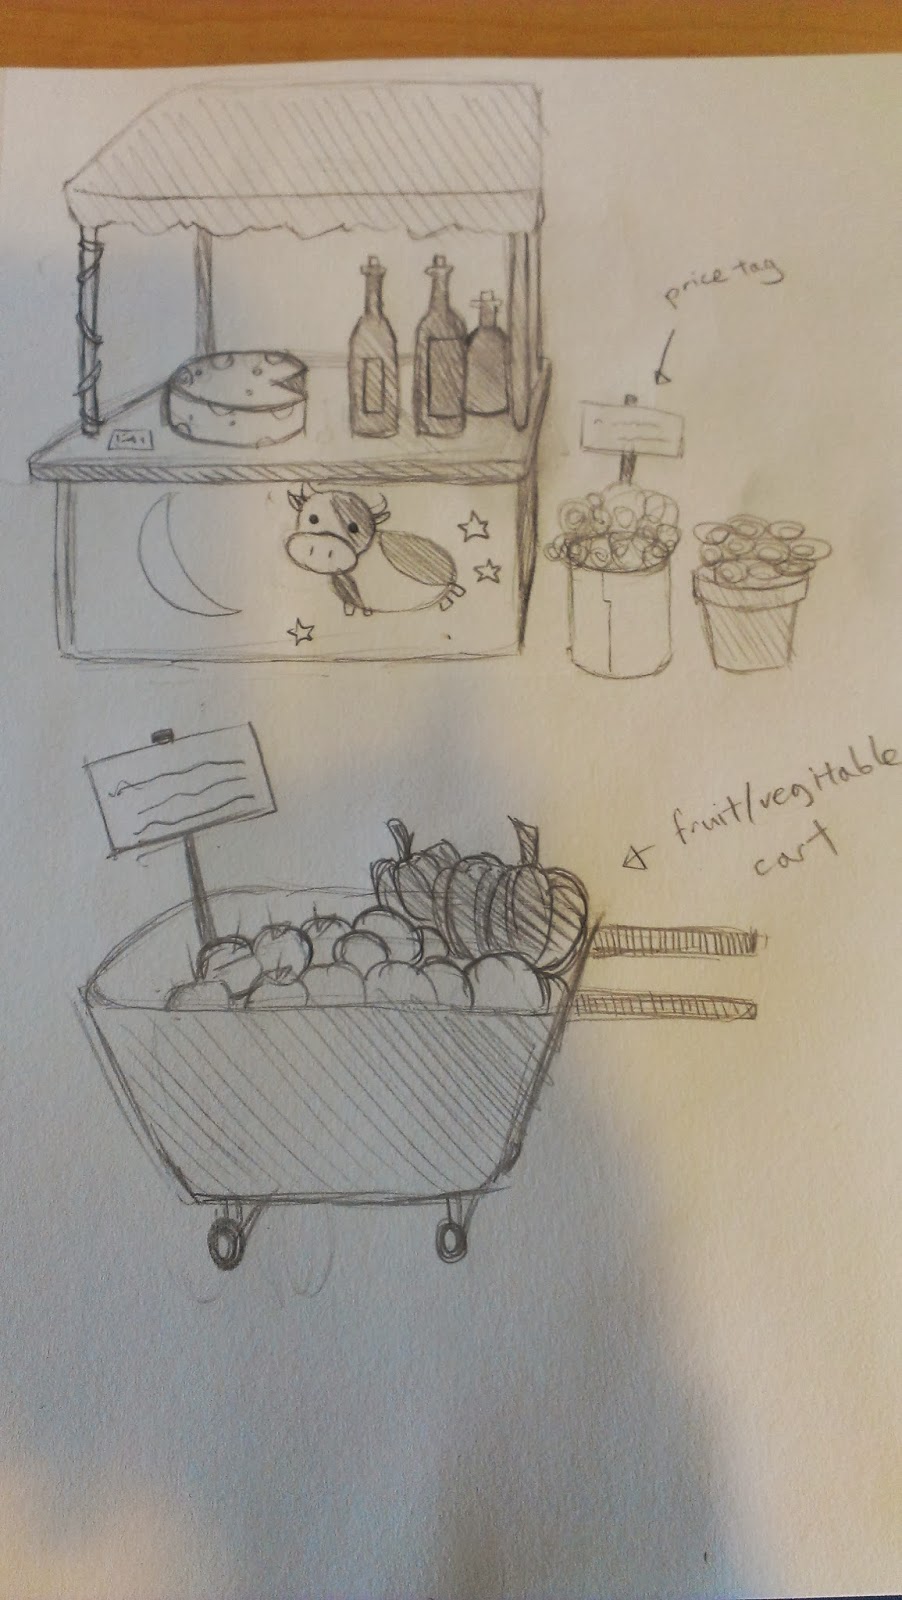 price tag
fruit/vegitable
cart